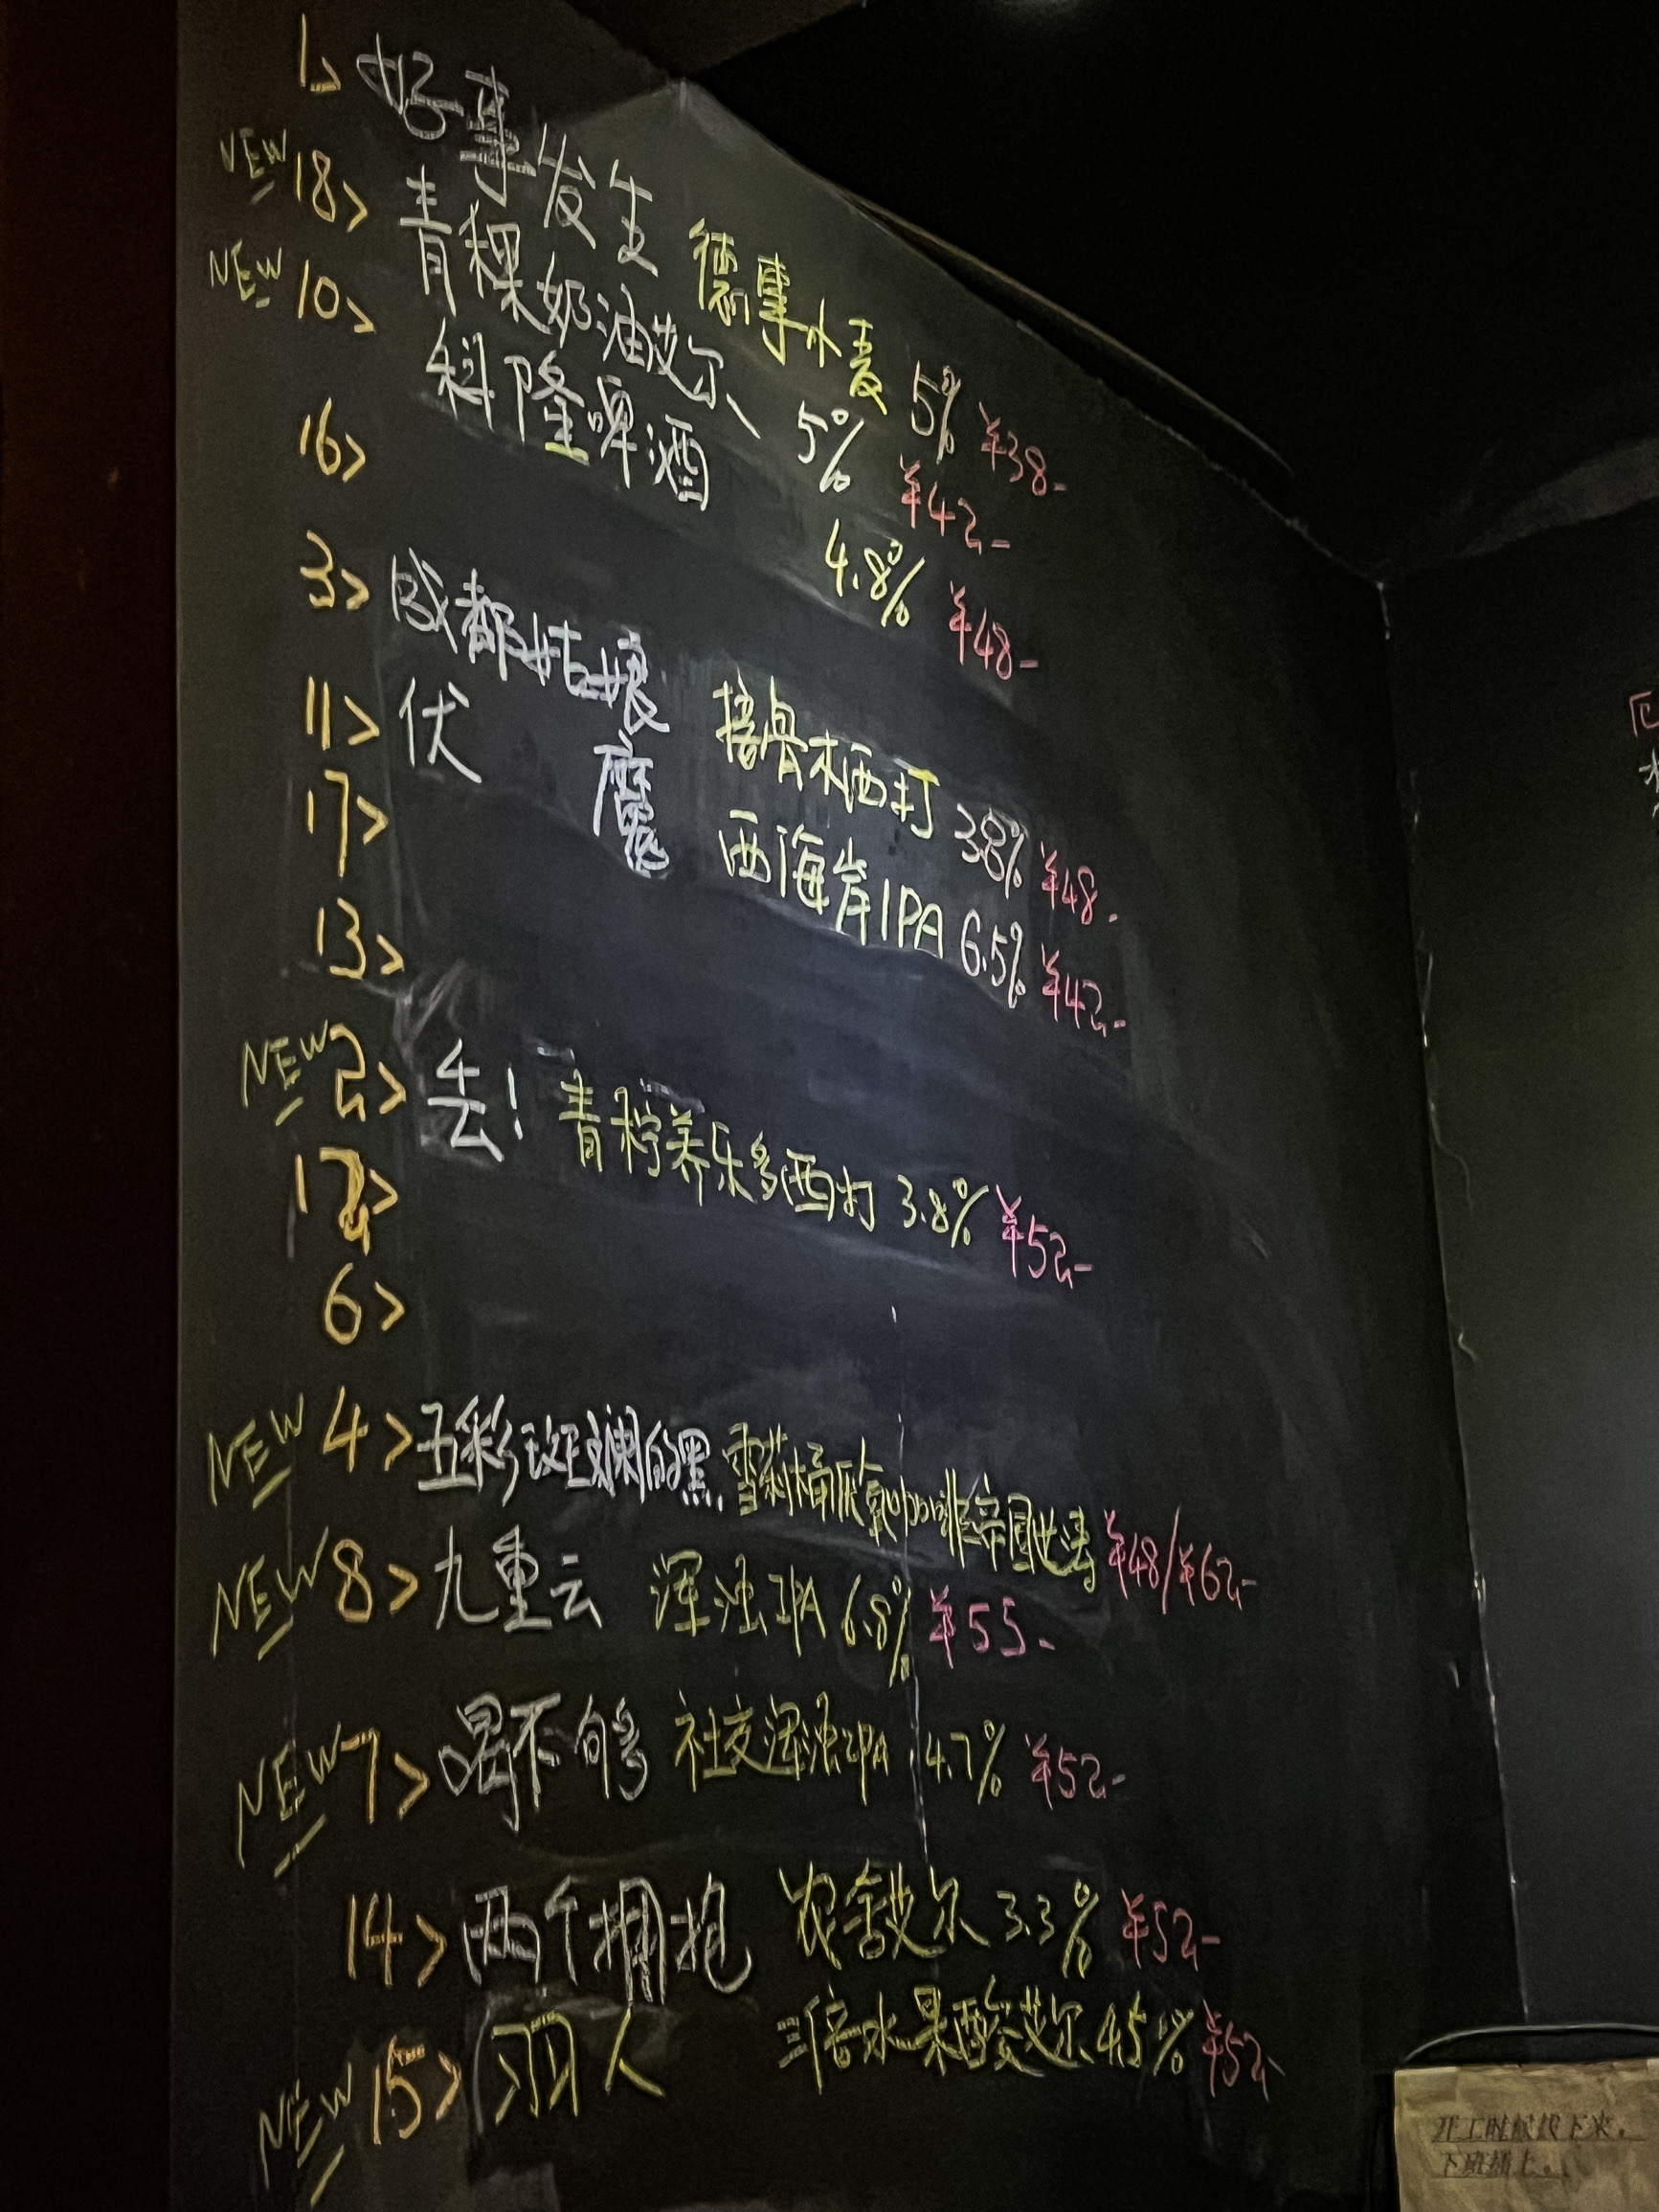 1> 好事发生 德式小麦 5% ¥38-
NEW 18> 青稞奶油艾尔、 5% ¥42-
NEW 10> 科隆啤酒 4.8% ¥48-
16>
3> 成都姑娘 接骨木西打 3.8% ¥48-
11> 伏 魔 西海岸IPA 6.5% ¥42-
17>
13>
NEW 2> 丢! 青柠养乐多西打 3.8% ¥52-
12>
6>
NEW 4> 五彩斑斓的黑 咖啡帝国世涛 ¥48/¥62-
NEW 8> 九重云 浑浊IPA 6.8% ¥55-
NEW 7> 喝不够 社交浑浊IPA 4.7% ¥52-
14> 两个拥抱 农舍艾尔 3.3% ¥52-
NEW 15> 羽人 三倍水果酸艾尔 4.5% ¥52-
开工时候找下来。
下班插上。